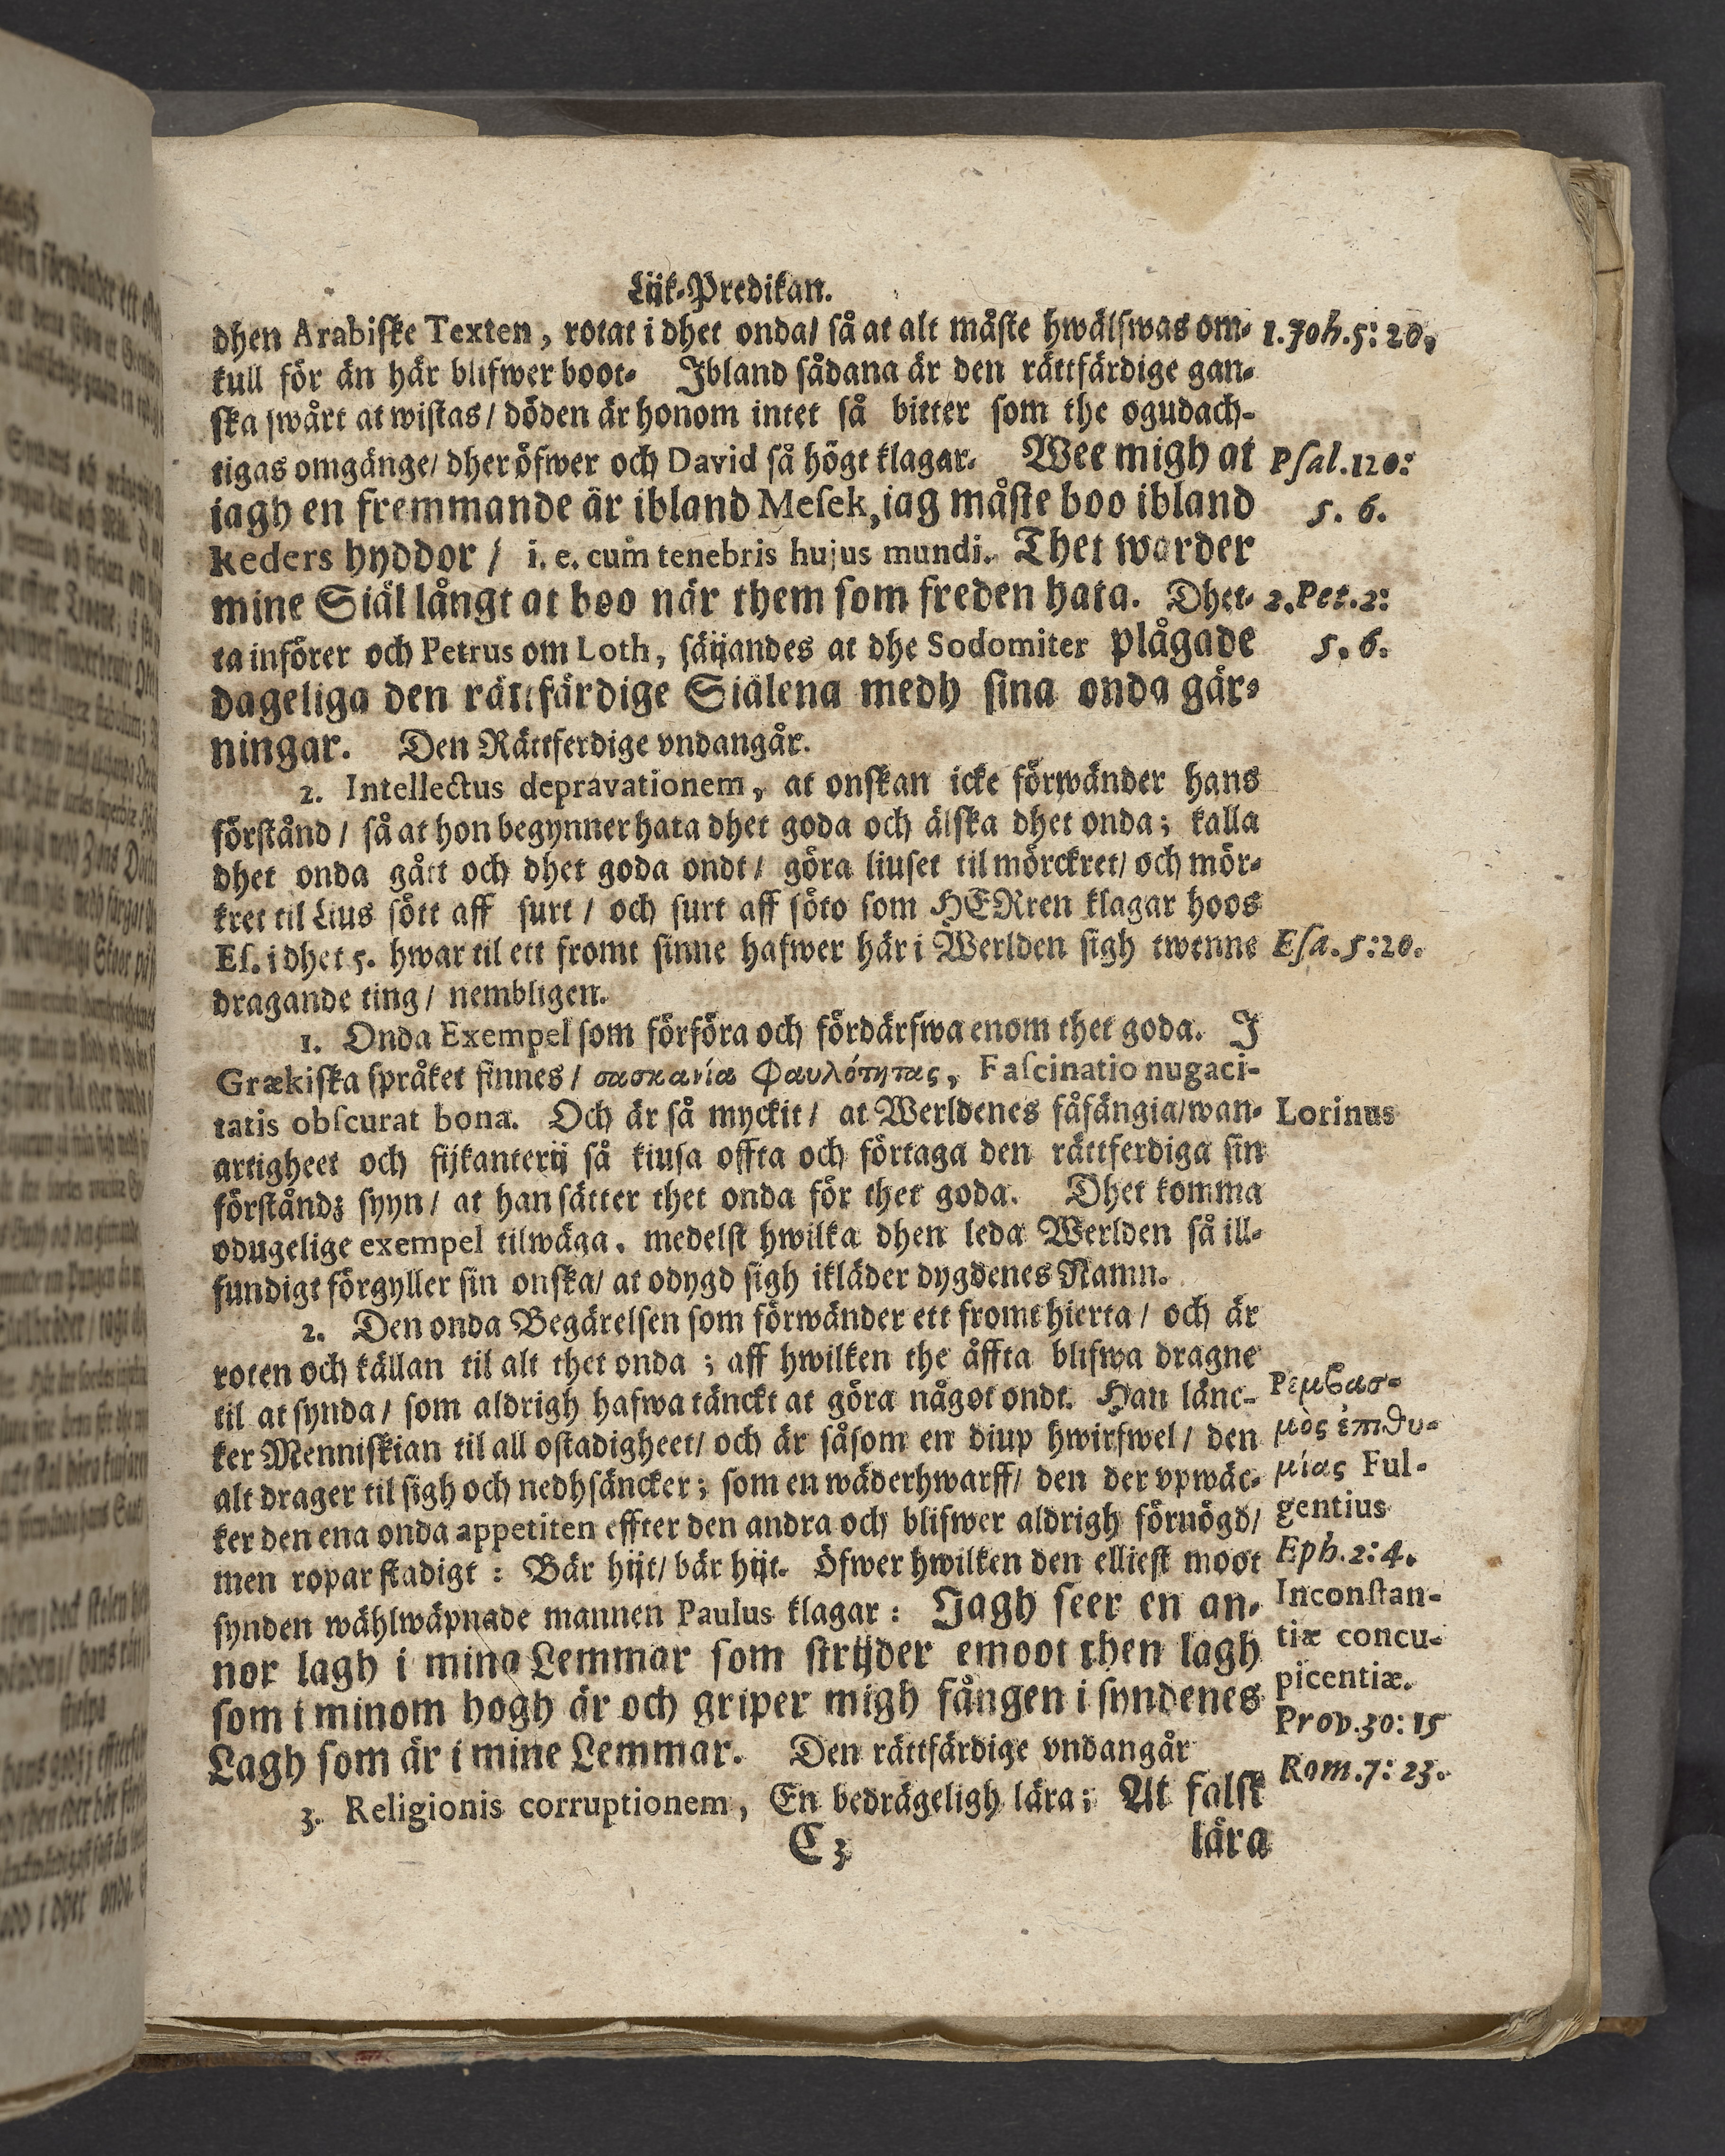 Lijk-Predikan.
dhen Arabiske Texten, rotat i dhet onda/ så at alt måste hwälfwas om- 1. Joh. 5: 20.
kull för än här blifwer boot. Ibland sådana är den rättfärdige gan-
ska swårt at wistas/ döden är honom intet så bitter som the ogudach-
tigas omgänge/ dher öfwer och David så högt klagar. Wee migh at Psal. 120:
iagh en fremmande är ibland Mesek, iag måste boo ibland 5. 6.
Keders hyddor / i. e. cum tenebris hujus mundi. Thet warder
mine Siäl långt at boo när them som freden hata. Dhet- 2. Pet. 2:
ta införer och Petrus om Loth, säijandes at dhe Sodomiter plågade 5. 6.
dageliga den rättfärdige Siälena medh sina onda gär-
ningar. Den Rättferdige vndangår.
2. Intellectus depravationem, at onskan icke förwänder hans
förstånd / så at hon begynner hata dhet goda och älska dhet onda; kalla
dhet onda gått och dhet goda ondt/ göra liuset til mörckret/ och mör-
kret til Lius sött aff surt / och surt aff söto som HERren klagar hoos
Es. i dhet 5. hwar til ett fromt sinne hafwer här i Werlden sigh twenne Esa. 5: 20.
dragande ting / nembligen.
1. Onda Exempel som förföra och fördärfwa enom thet goda. I
Grækiska språket finnes / σασκανία Φαυλότητας, Fascinatio nugaci-
tatis obscurat bona. Och är så myckit / at Werldenes fåfängia/wan- Lorinus
artigheet och fijkanterij så kiusa offta och förtaga den rättferdiga sin
förståndz syyn / at han sätter thet onda för thet goda. Dhet komma
odugelige exempel tilwäga, medelst hwilka dhen leda Werlden så ill-
fundigt förgyller sin onska/ at odygd sigh ikläder dygdenes Namn.
2. Den onda Begärelsen som förwänder ett fromt hierta / och är
roten och källan til alt thet onda ; aff hwilken the åffta blifwa dragne
til at synda / som aldrigh hafwa tänckt at göra något ondt. Han länc- Ρεμϐασ-
ker Menniskian til all ostadigheet/ och är såsom en diup hwirfwel / den μὸς ἐπιθυ-
alt drager til sigh och nedhsäncker; som en wäderhwarff/ den der vpwäc- μίας Ful-
ker den ena onda appetiten effter den andra och blifwer aldrigh förnögd/ gentius
men ropar stadigt : Bär hijt/ bär hijt. Öfwer hwilken den elliest moot Eph. 2: 4.
synden wählwäpnade mannen Paulus klagar : Jagh seer en an- Inconstan-
nor lagh i mina Lemmar som strijder emoot then lagh tiæ concu-
som i minom hogh är och griper migh fången i syndenes picentiæ.
Lagh som är i mine Lemmar. Den rättfärdige vndangår Prov. 30: 15
3. Religionis corruptionem, En bedrägeligh lära; At falsk Rom. 7: 23.
C 3 lära